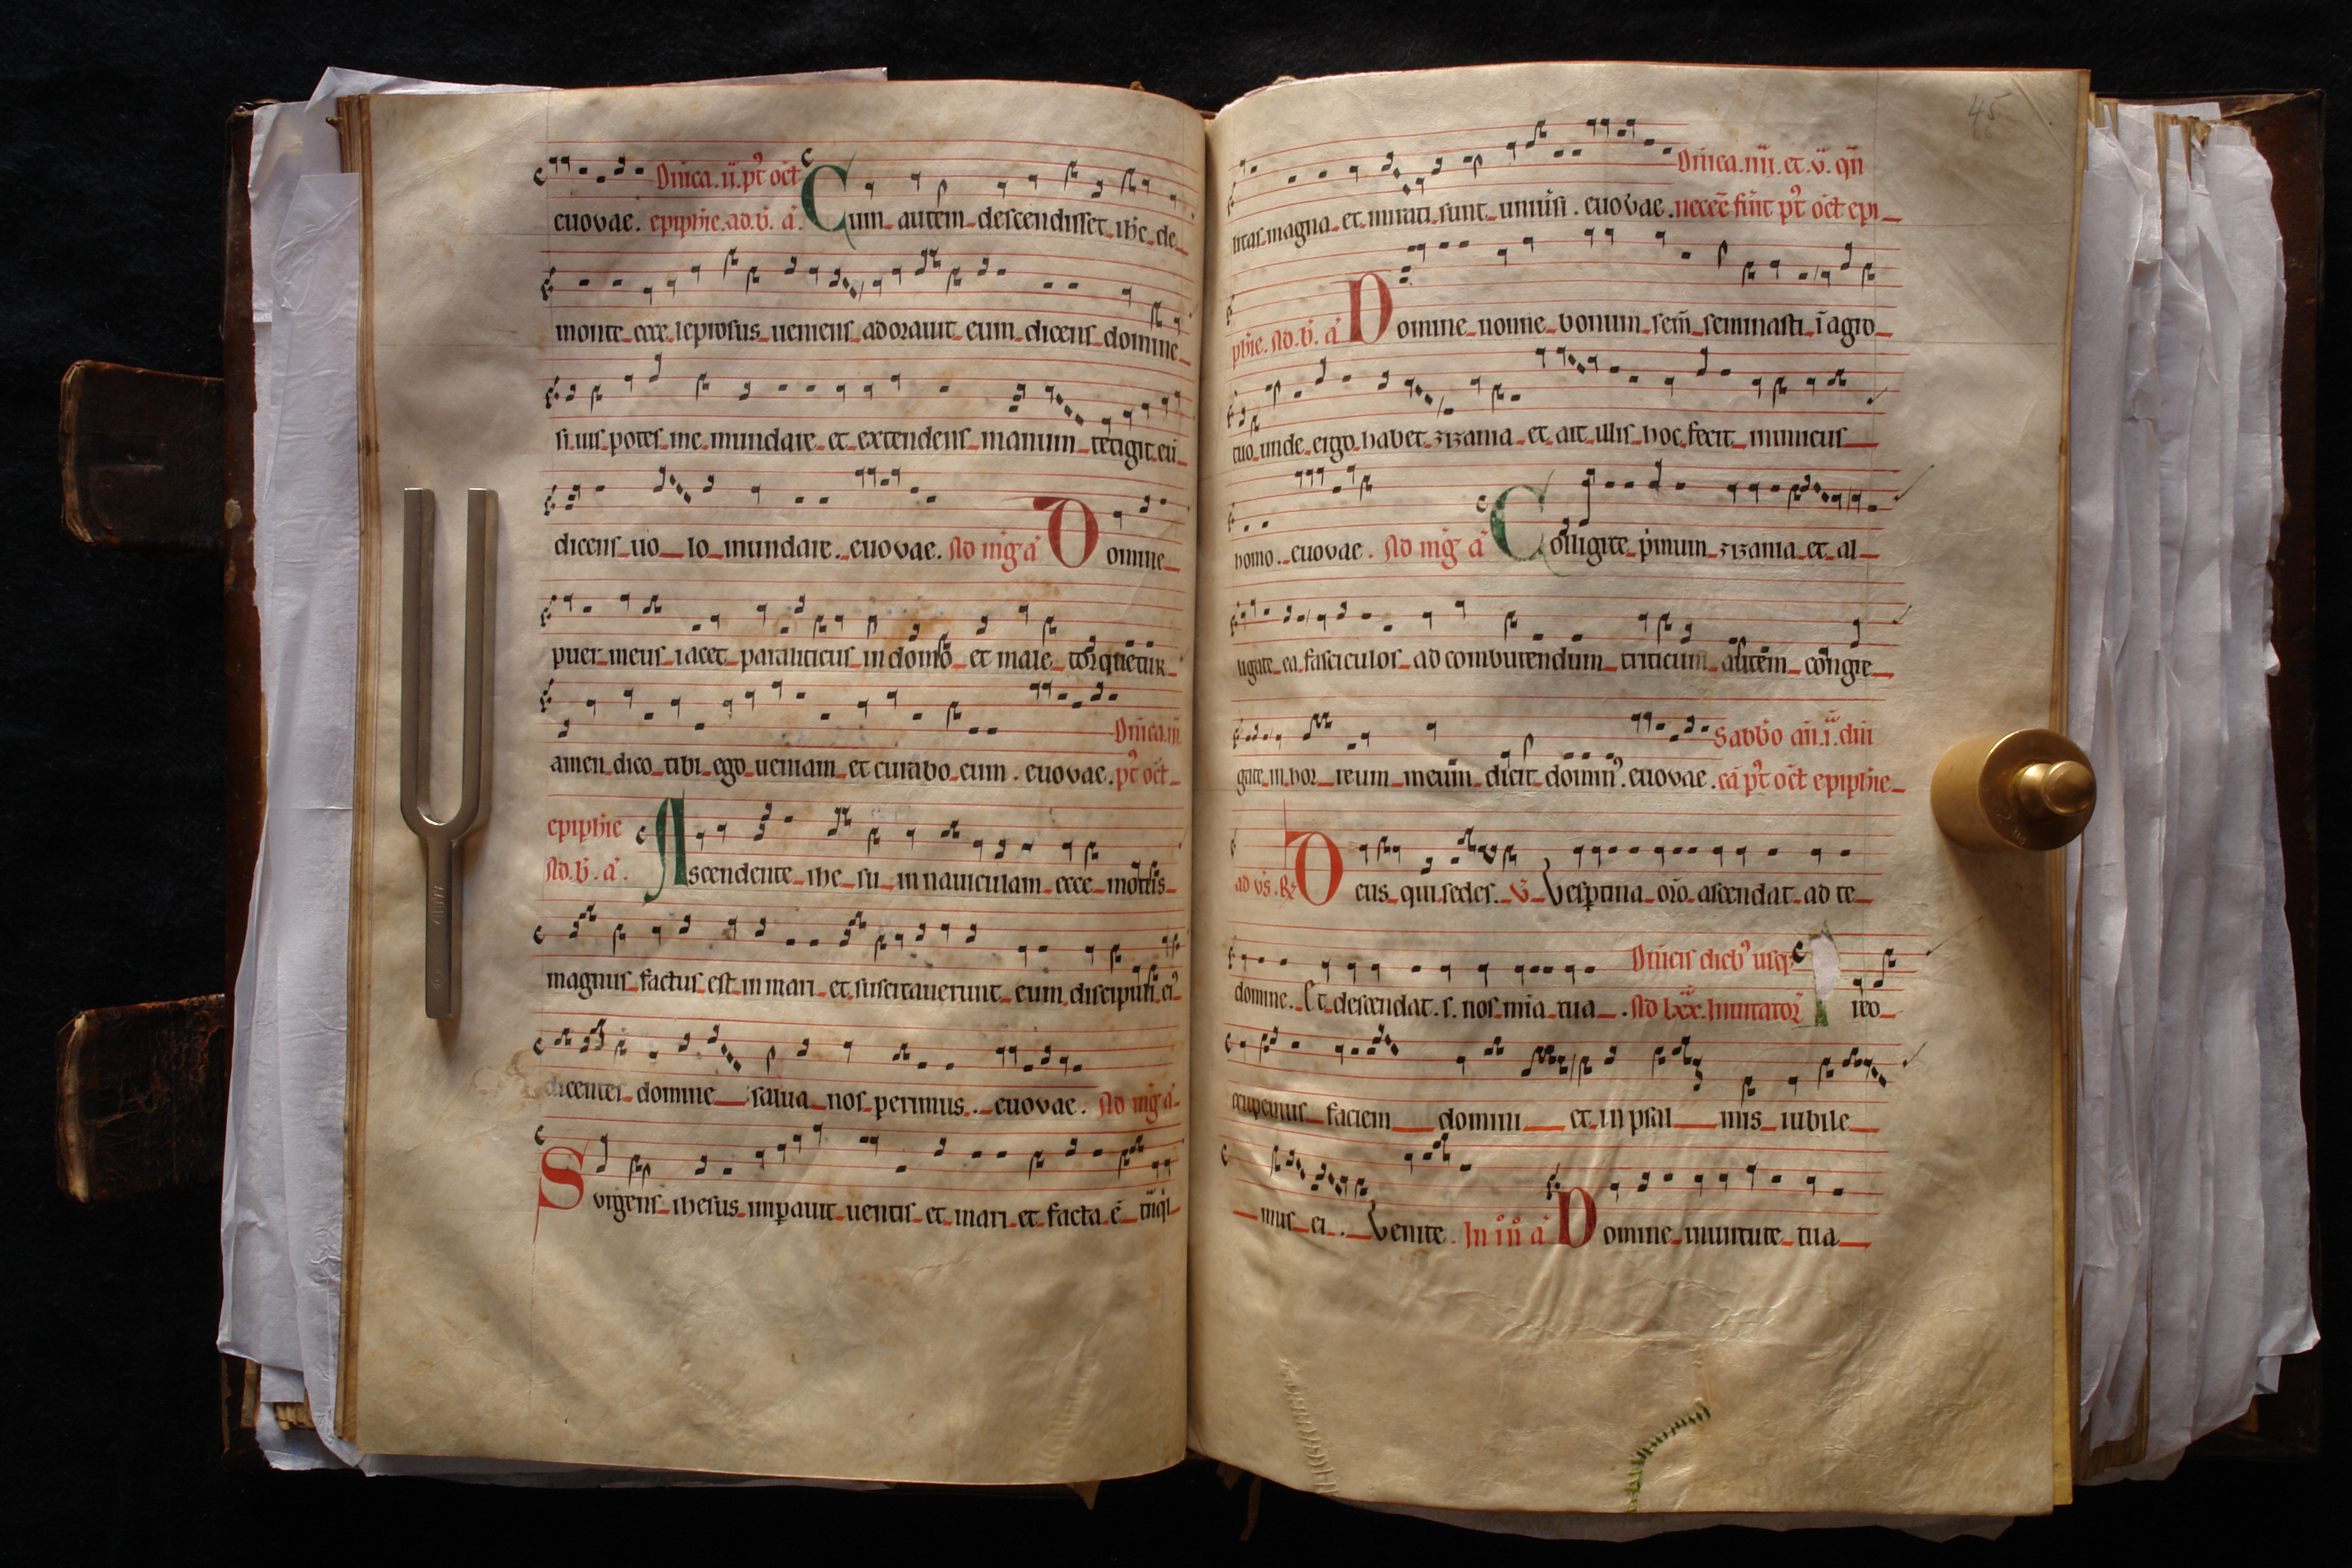 Dnica.ii.pt oct
euovae. epiphie.ad.b. a. Cum autem descendisset ihc de
monte ecce leprosus ueniens adorauit eum dicens domine
si uis potes me mundare et extendens manum tetigit eu
dicens uo lo mundare. euovae. Ad mg a Domine
puer meus iacet paraliticus in domo et male torquetur
Dnica.iii
amen dico tibi ego ueniam et curabo eum. euovae. pt oct
epiphie
Ad.b. a. Ascendente ihe su in nauiculam ecce motus
magnus factus est in mari et suscitauerunt eum discipuli ei
dicentes domine salua nos perimus. euovae. Ad mg a
Surgens ihesus imperauit uentis et mari et facta e
45
Dnica.iiii.et.v.qn
litas magna et mirati sunt uniusi. euovae. necece funt pt oct epi
phie. Ad.b. a Domine nonne bonum sem seminasti i agro
tuo unde ergo habet zizania et ait illis hoc fecit inimicus
homo. euovae. Ad mg a Colligite pmum zizania et al
ligate ea fasciculos ad comburendum triticum autem congre
Sabbo an.i.dni
gate in hor reum meum dicit domin. euovae. ca pt oct epiphie
ad vs. R Deus qui sedes. V Vesptina oio ascendat ad te
Dnicis dieb usq
domine. Et descendat.s. nos mia tua. Ad lxx. Inuitator reo
cupemus faciem domini et in psal mis iubile
mus ei. Venite. In iii a Domine in uirtute tua